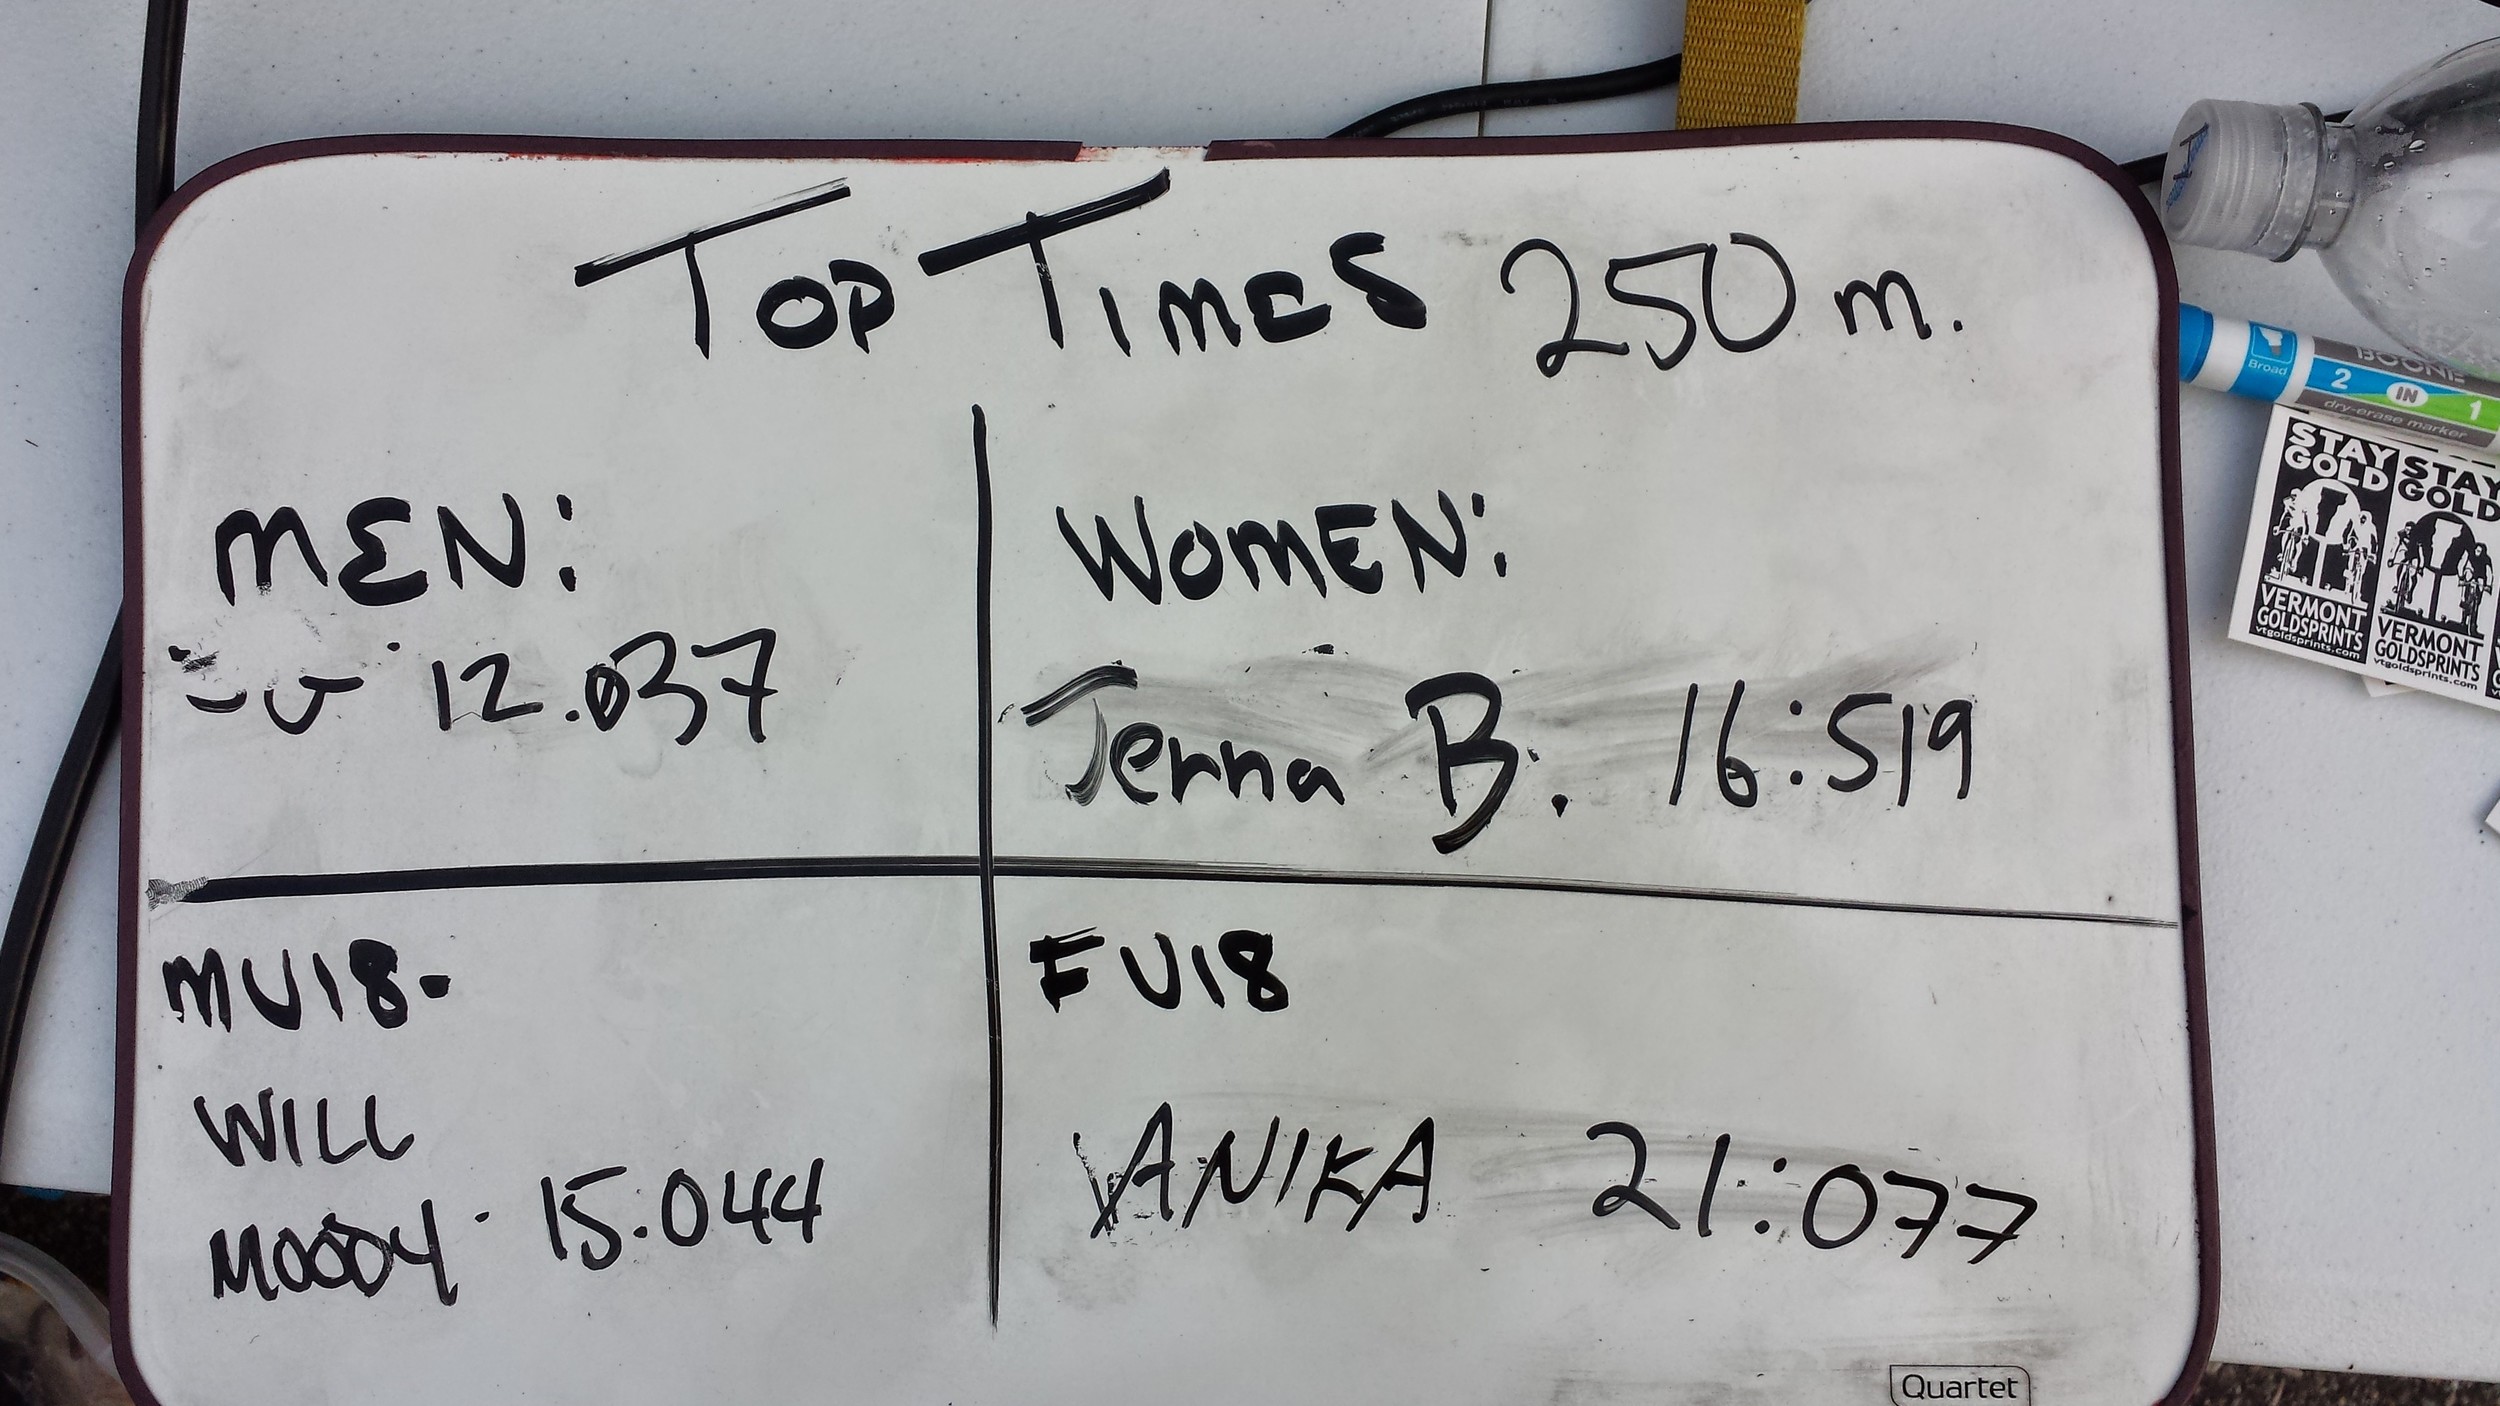 Top Times 250 m.
MEN:
12.037
WOMEN:
Jenna B. 16:519
MU18.
WILL
MOODY · 15.044
FU18
ANIKA 21:077
Quartet
Broad
2 IN 1
dry-erase marker
STAY
GOLD
VERMONT
GOLDSPRINTS
vtgoldsprints.com
STAY
GOLD
VERMONT
GOLDSPRINTS
vtgoldsprints.com